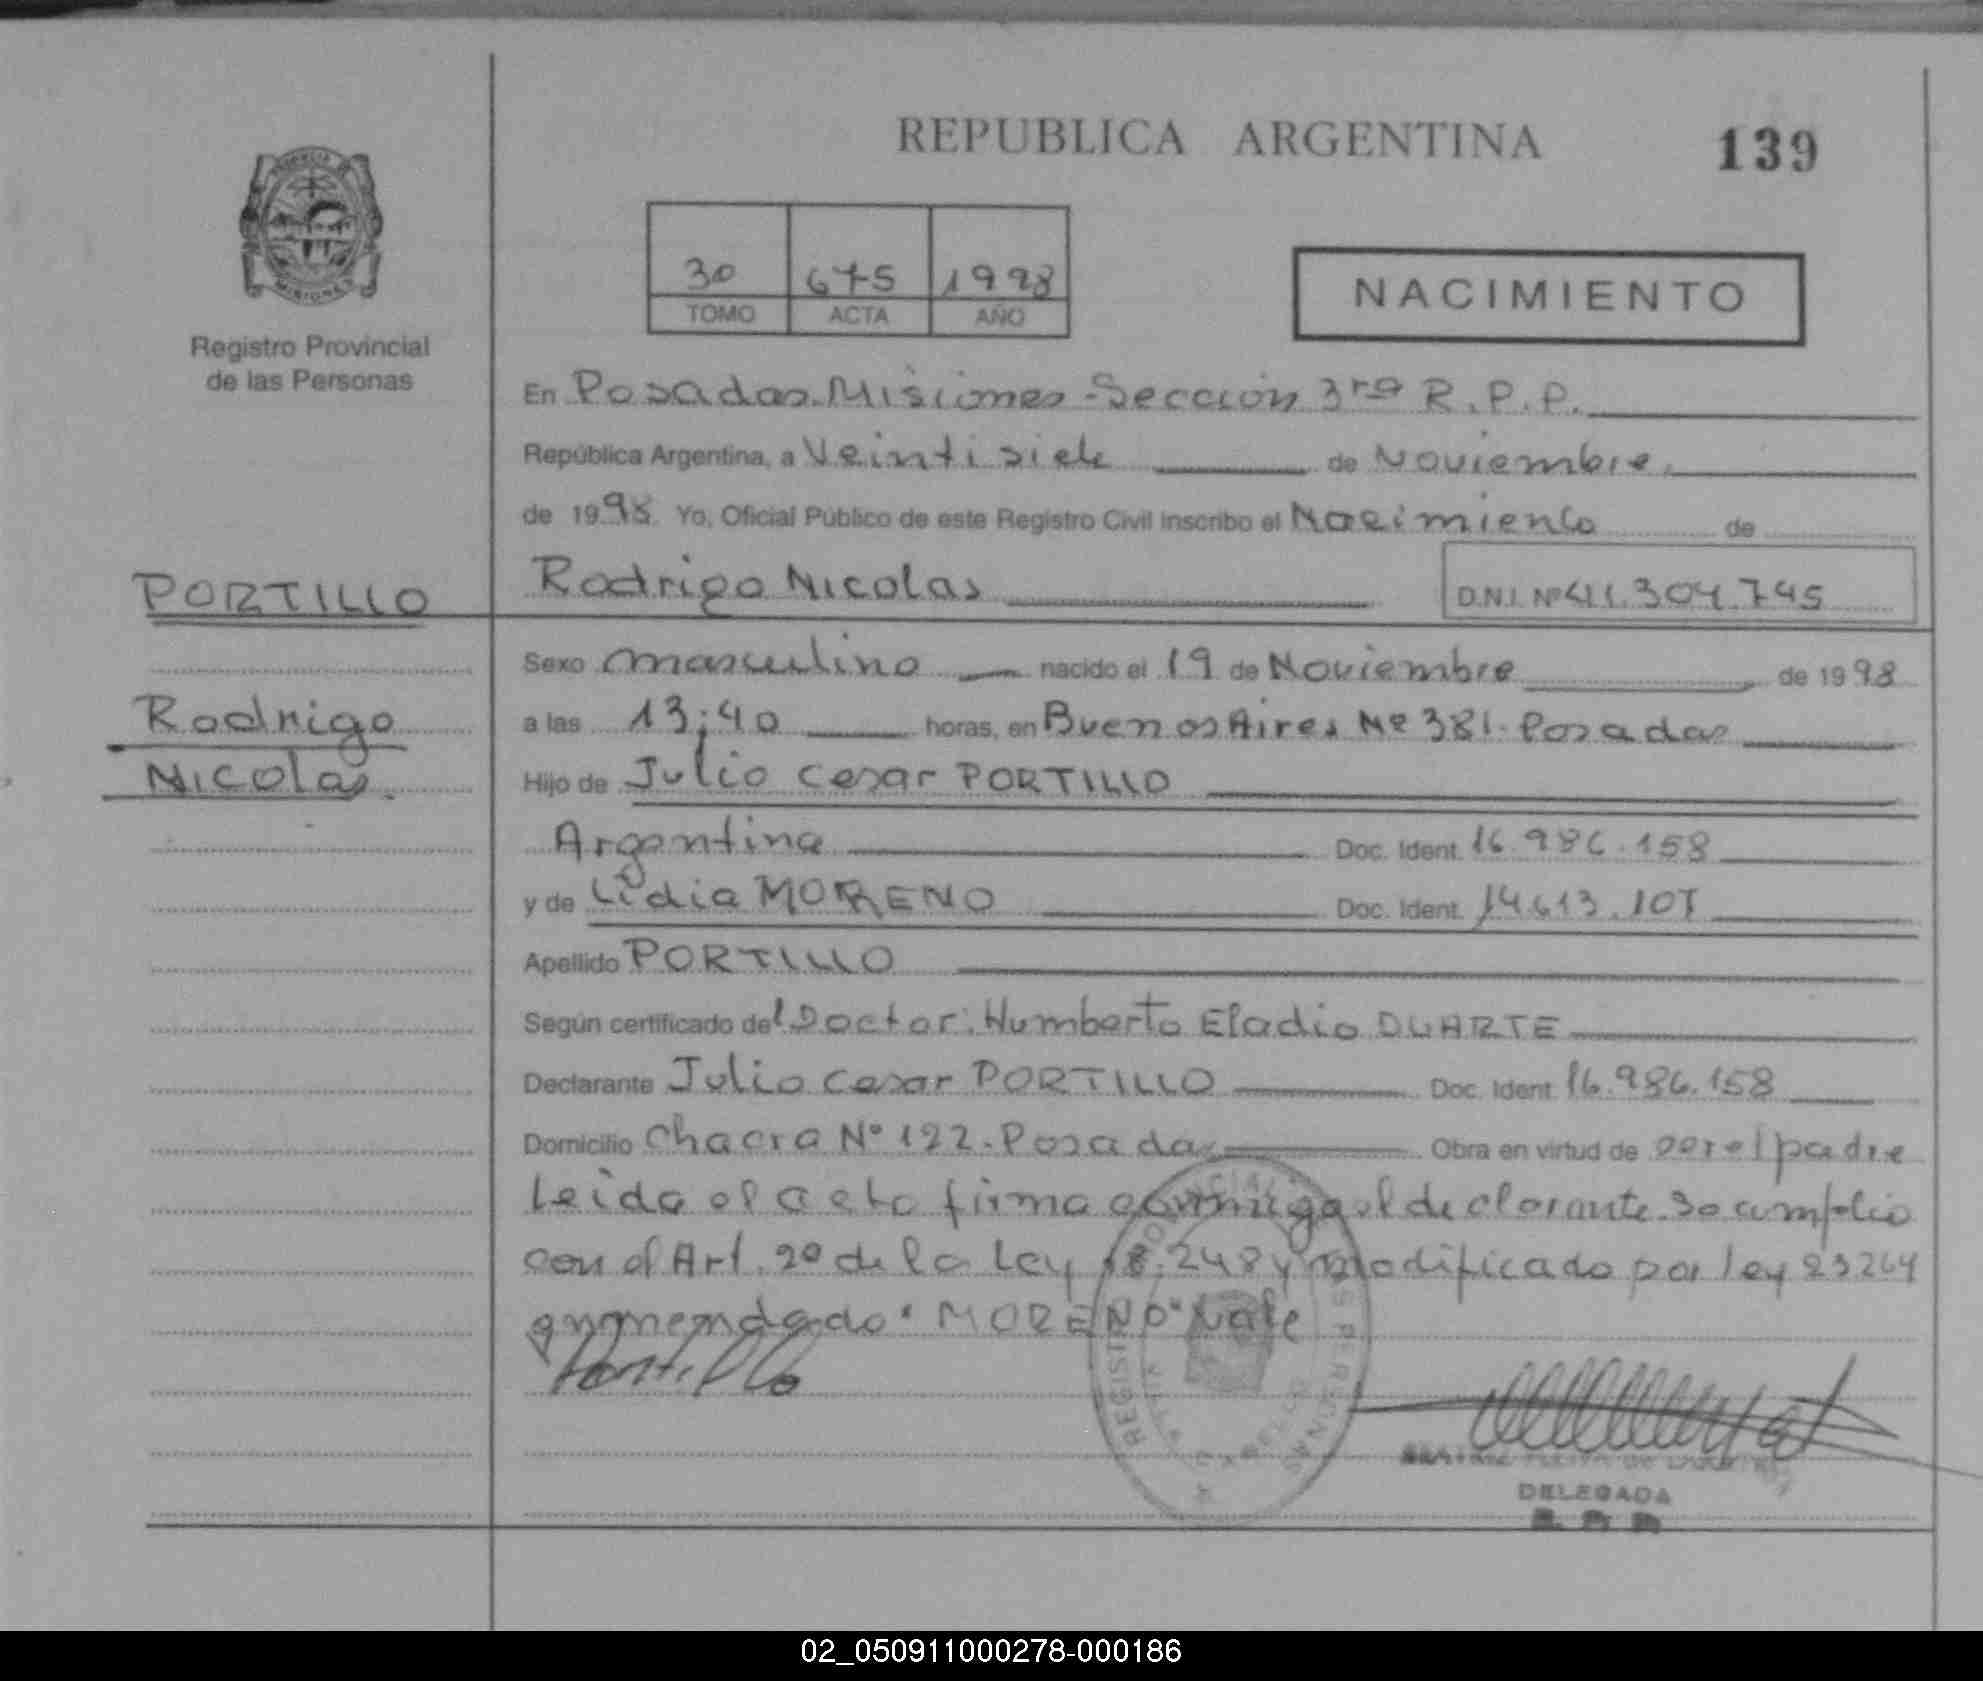 REPUBLICA ARGENTINA
139
30 675 1998
TOMO ACTA AÑO
NACIMIENTO
MISIONES
Registro Provincial
de las Personas
En Posadas.Misiones-Sección 3ra R.P.P.
República Argentina, a Veintisiete de Noviembre.
de 1998. Yo, Oficial Público de este Registro Civil inscribo el Nacimiento de
PORTILLO
Rodrigo Nicolas
D.N.I. Nº 41.304.745
Sexo masculino nacido el 19 de Noviembre de 1998
Rodrigo
a las 13:40 horas, en Buenos Aires Nº 381. Posadas
Nicolas.
Hijo de Julio Cesar PORTILLO
Argentina Doc. Ident. 16.986.158
y de Lidia MORENO Doc. Ident. 14.613.107
Apellido PORTILLO
Según certificado del Doctor: Humberto Eladio DUARTE
Declarante Julio Cesar PORTILLO Doc. Ident. 16.986.158
Domicilio Chacra Nº 122-Posadas Obra en virtud de ser el padre
Leida el acta firma conmigo el declarante. Se cumplio
con el Art. 2º de la Ley 18.248 y modificado por ley 23264
enmendado "MORENO" Vale
Portillo
REGISTRO PROVINCIAL PERSONAS
DELEGADA
02_050911000278-000186